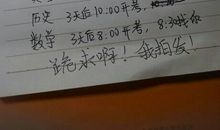 历史 3天后10:00开考,
数学 3天后8:00开考, 8:30
跪求啊！我